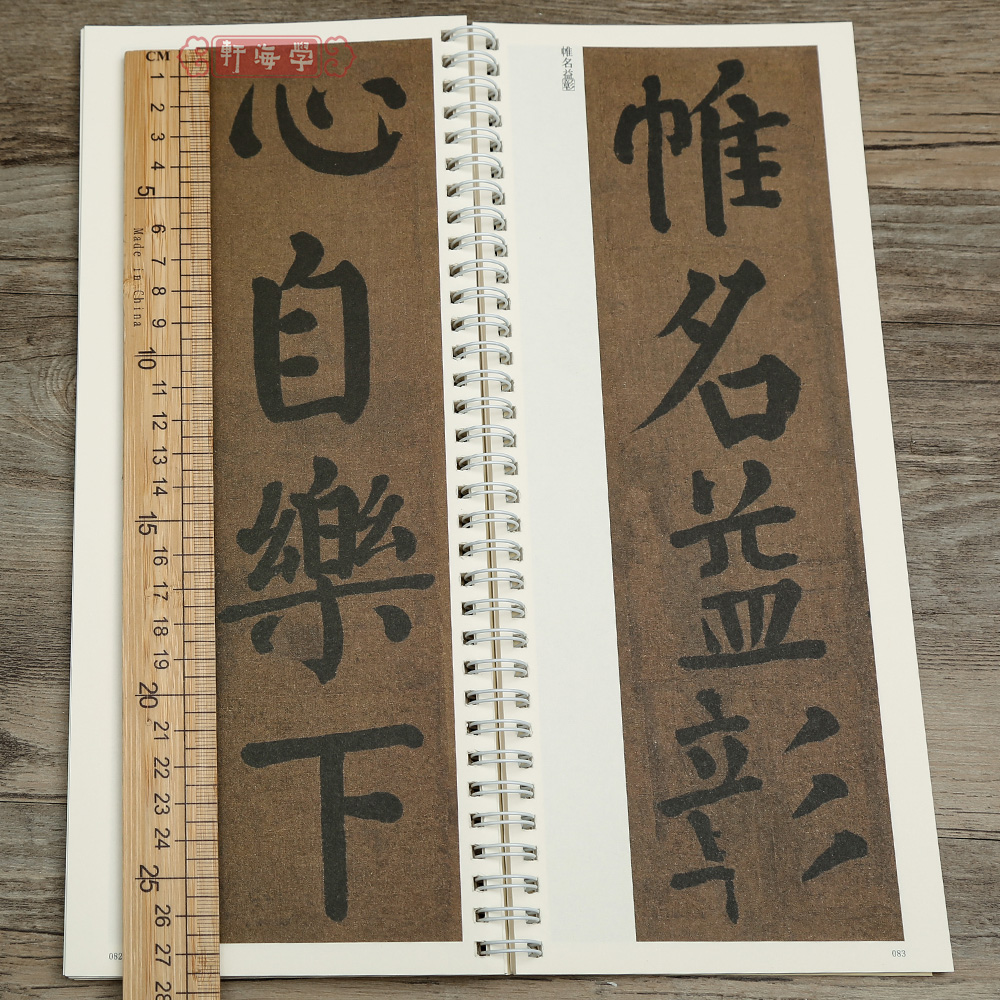 學海軒
帷名益彰
帷名益彰
083
心自樂下
082
CM 1 2 3 4 5 6 7 8 9 10 11 12 13 14 15 16 17 18 19 20 21 22 23 24 25 26 27 28
Made in China